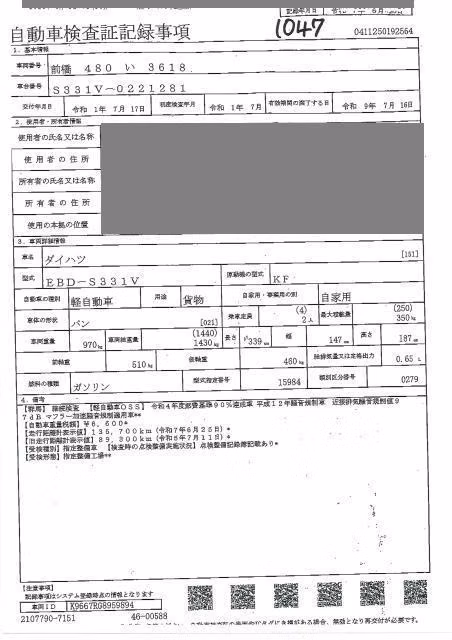 記録年月日
1047
自動車検査証記録事項
0411250192564
1. 基本情報
車両番号 前橋 480 い 3618
車台番号 S331V-0221281
交付年月日 令和 1年 7月 17日 初度検査年月 令和 1年 7月 有効期間の満了する日 令和 9年 7月 16日
2. 使用者・所有者情報
使用者の氏名又は名称
使用者の住所
所有者の氏名又は名称
所有者の住所
使用の本拠の位置
3. 車両詳細情報
車名 ダイハツ [151]
型式 EBD-S331V 原動機の型式 KF
自動車の種別 軽自動車 用途 貨物 自家用・事業用の別 自家用
車体の形状 バン [021] 乗車定員 (4) 2人 最大積載量 (250) 350kg
車両重量 970kg 車両総重量 (1440) 1430kg 長さ 339cm 幅 147cm 高さ 187cm
前軸重 510kg 後軸重 460kg 総排気量又は定格出力 0.65L
燃料の種類 ガソリン 型式指定番号 15984 類別区分番号 0279
4. 備考
【群馬】 継続検査 【軽自動車OSS】 令和4年度燃費基準90%達成車 平成12年騒音規制車 近接排気騒音規制値9
7dB マフラー加速騒音規制適用車**
【自動車重量税額】¥6,600*
【走行距離計表示値】135,700km(令和7年6月25日)*
【旧走行距離計表示値】89,300km(令和5年7月11日)*
【受検種別】指定整備車 【検査時の点検整備実施状況】点検整備記録簿記載あり*
【受検形態】指定整備工場**
【注意事項】
記録事項はシステム登録時点の情報となります
車両ID K9667RG8959894
2107790-7151 46-00588